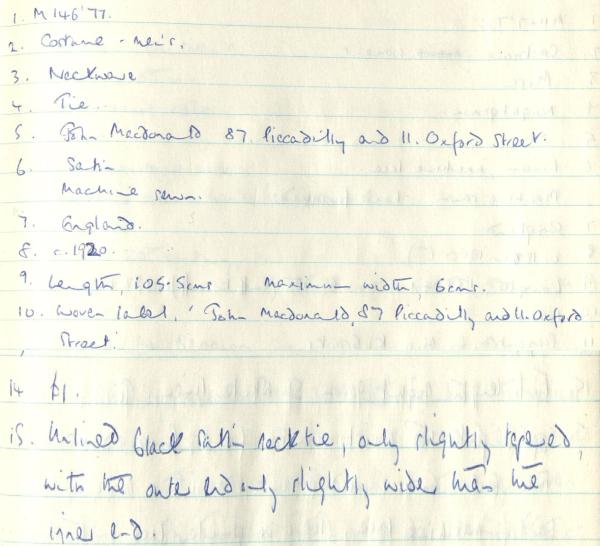 1. M 146'77.
2. Costume - men's.
3. Neckwear
4. Tie.
5. John Macdonald 87 Piccadilly and 11. Oxford Street.
6. Satin
Machine sewn.
7. England.
8. c.1920.
9. Length, 105.5cms maximum width, 6cms.
10. Woven label, 'John Macdonald, 87 Piccadilly and 11. Oxford
Street.'
14 £1.
15. Unlined black satin necktie, only slightly tapered,
with the outer end only slightly wider than the
inner end.